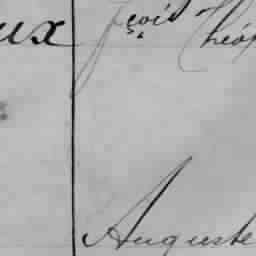 ux fçois Théop
Auguste